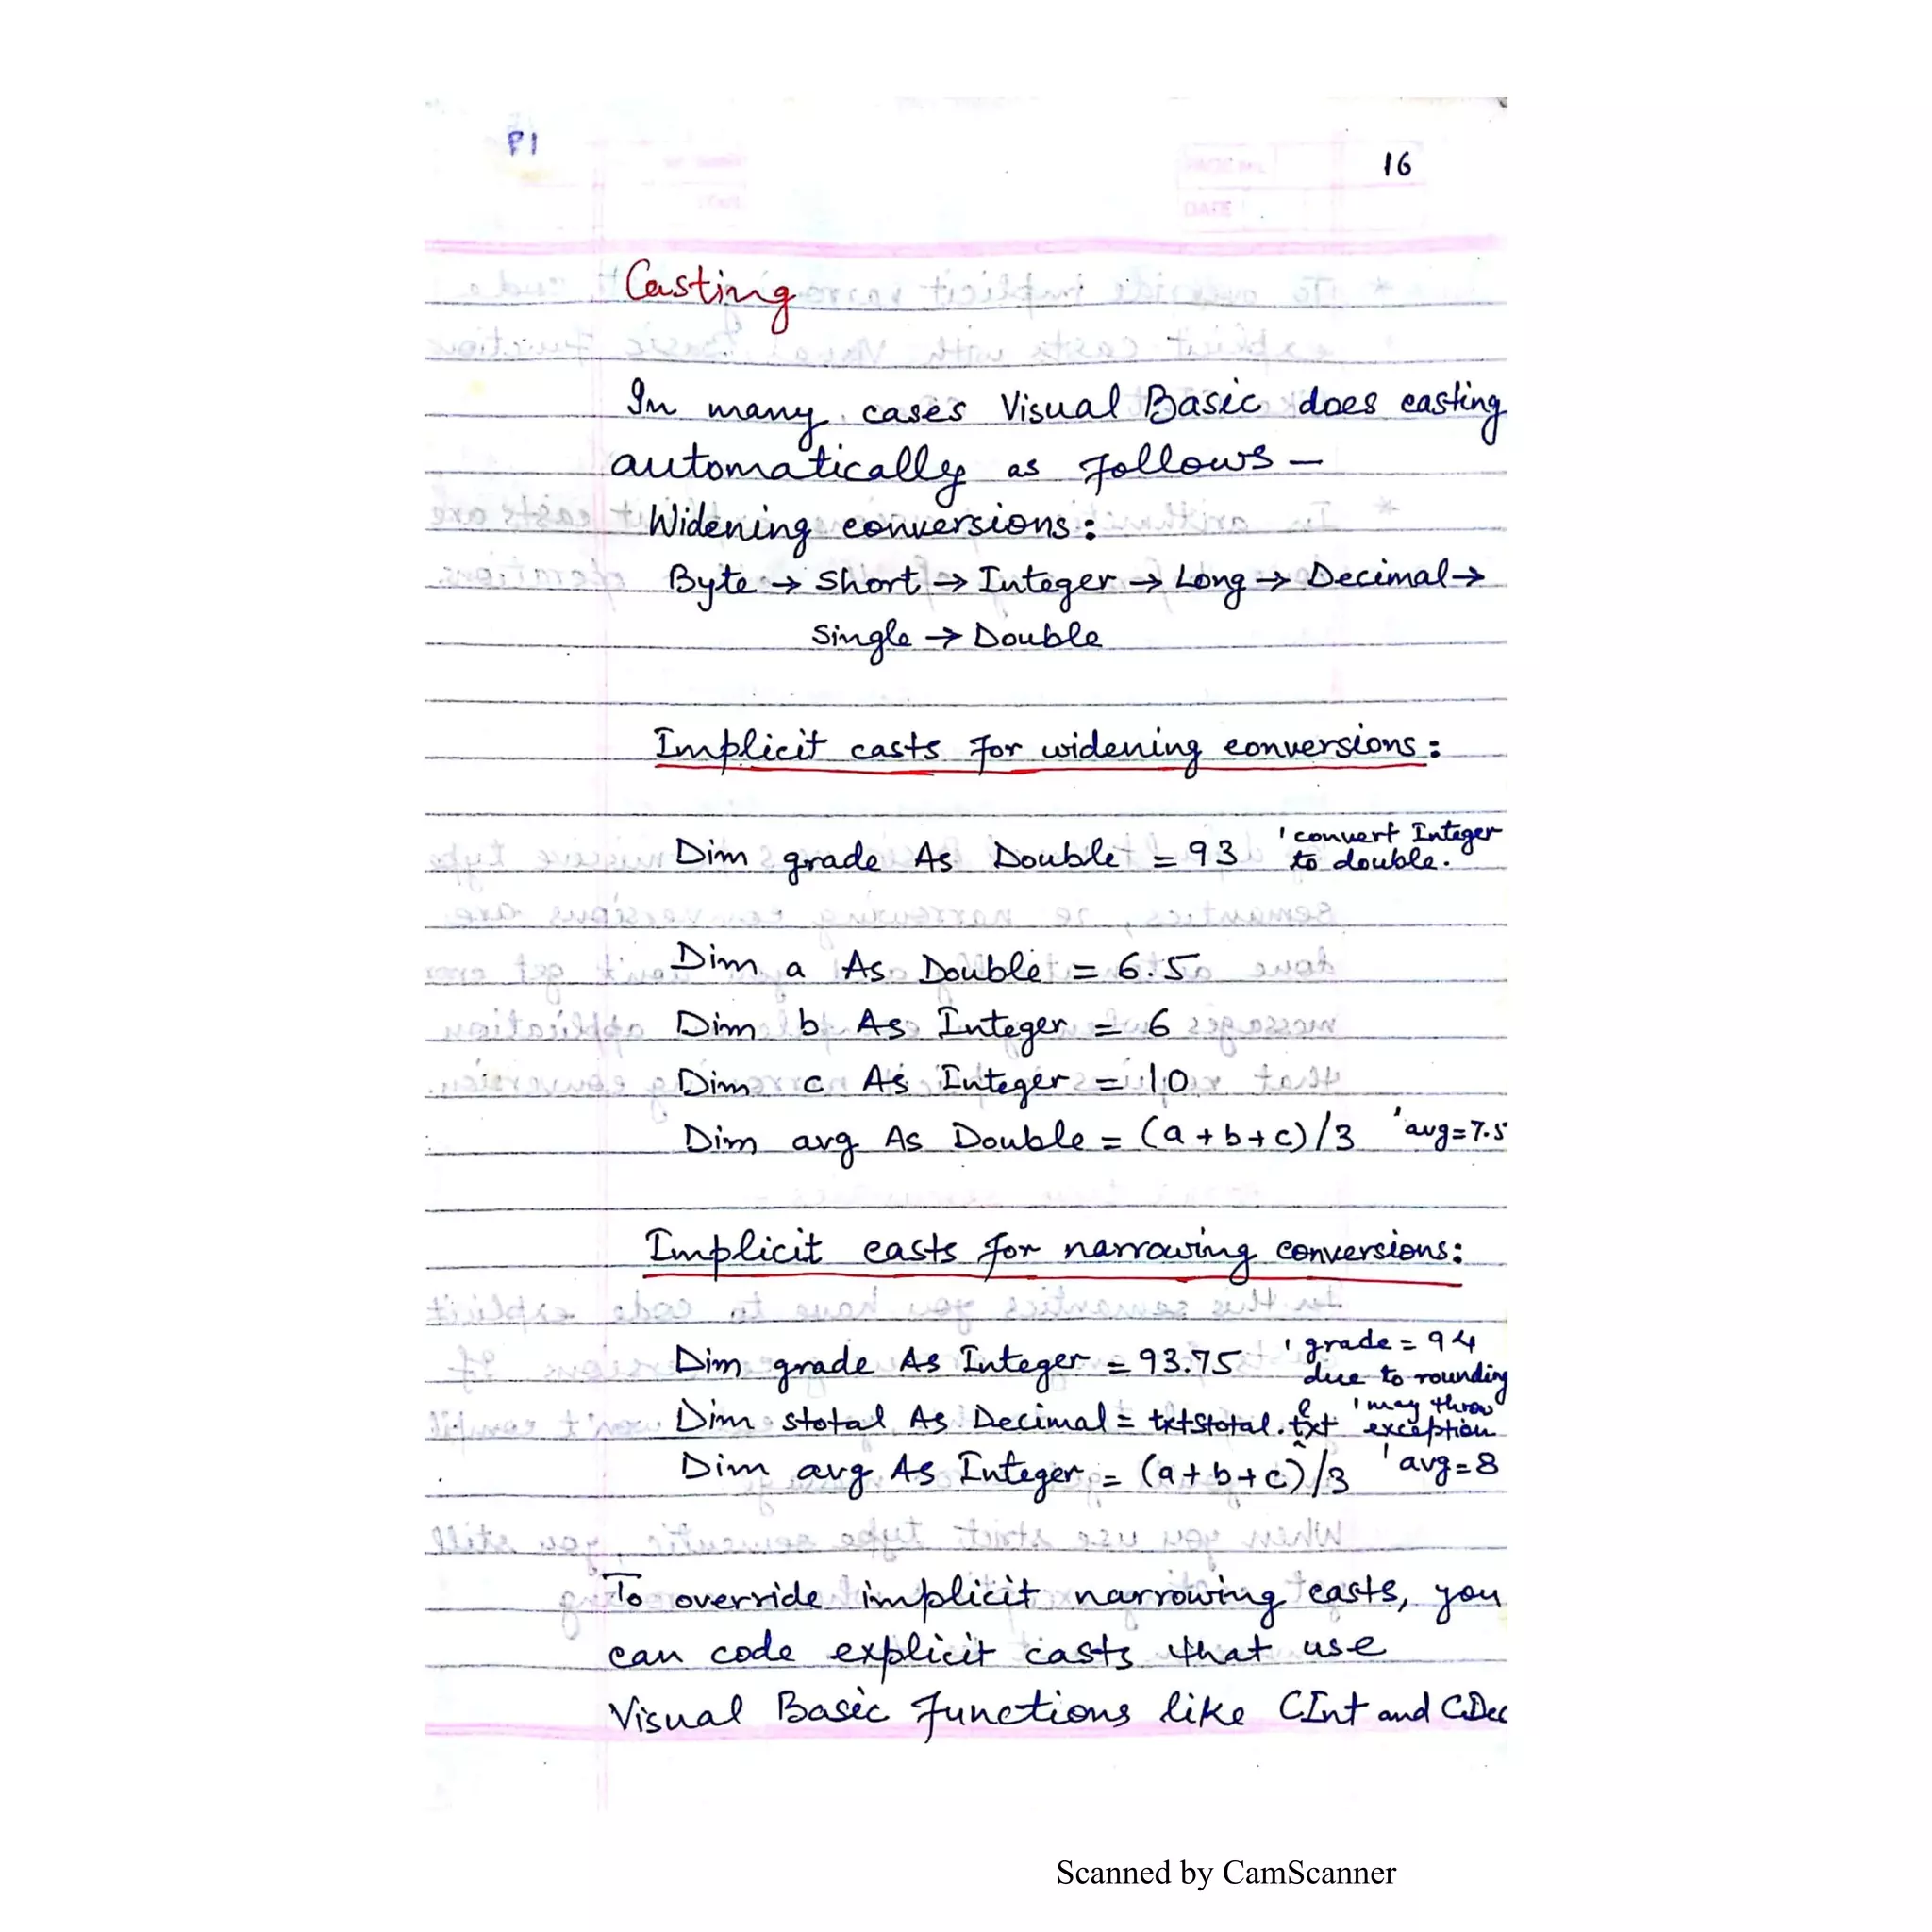 P1
16
Casting
In many cases Visual Basic does casting
automatically as follows –
Widening conversions:
Byte → Short → Integer → Long → Decimal →
Single → Double
Implicit casts for widening conversions:
Dim grade As Double = 93 'convert Integer
to double.
Dim a As Double = 6.5
Dim b As Integer = 6
Dim c As Integer = 10
Dim avg As Double = (a+b+c)/3 'avg=7.5
Implicit casts for narrowing conversions:
Dim grade As Integer = 93.75 'grade = 94
due to rounding
Dim stotal As Decimal = txtStotal.text 'may throw
exception
Dim avg As Integer = (a+b+c)/3 'avg=8
To override implicit narrowing casts, you
can code explicit casts that use
Visual Basic functions like CInt and CDec
DATE
Scanned by CamScanner